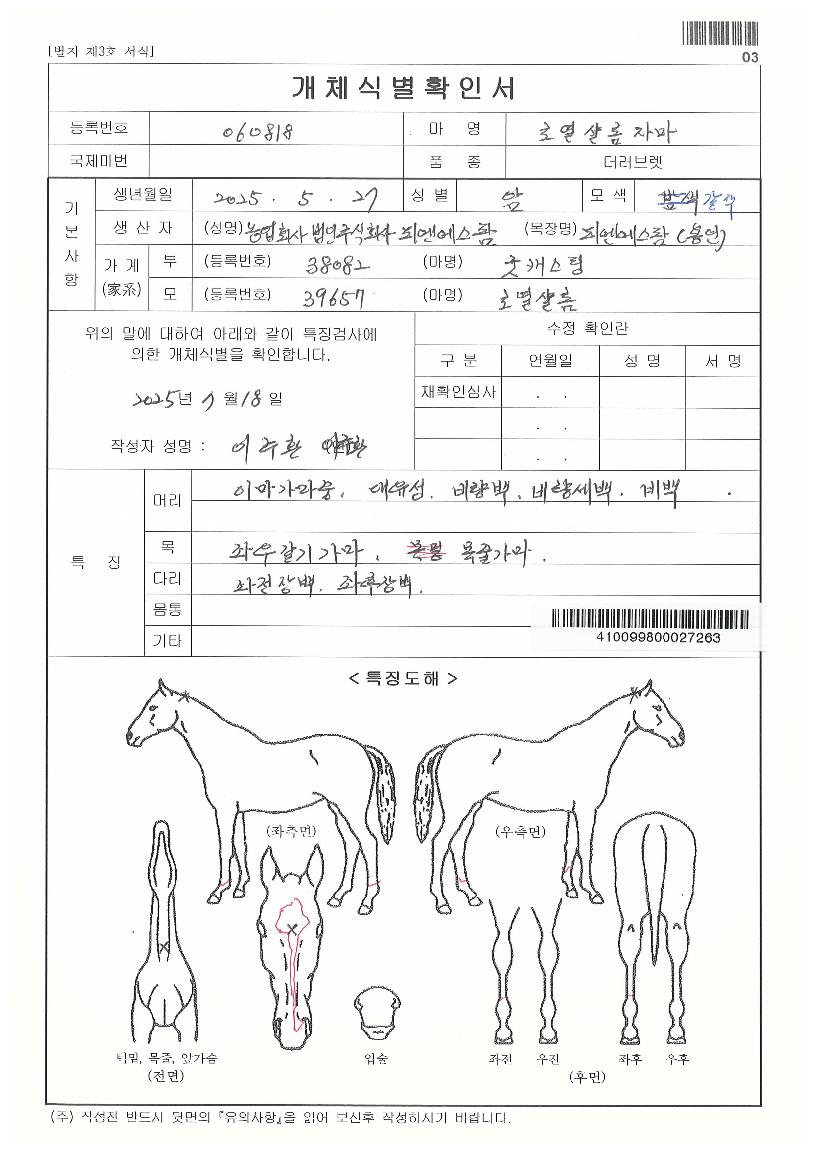 [별지 제3호 서식]
03
개체식별확인서
등록번호 060818 마 명 로열샬롬자마
국제마번 품 종 더러브렛
기본사항
생년월일 2025 . 5 . 27 성 별 암 모 색 갈색
생 산 자 (성명) 농업회사법인주식회사 피엔에스팜 (목장명) 피엔에스팜 (용인)
가 계 (家系)
부 (등록번호) 38082 (마명) 굿캐스팅
모 (등록번호) 39657 (마명) 로열샬롬
위의 말에 대하여 아래와 같이 특징검사에
의한 개체식별을 확인합니다.
2025년 월 18일
작성자 성명 : 이주환
수정 확인란
구 분 연월일 성 명 서 명
재확인심사 . .
. .
. .
특 징
머리 이마가마중, 대유성, 비량백, 비량세백, 비백 .
목 좌우갈기가마, 목줄가마.
다리 좌전장백, 좌후장백.
몸통
기타
410099800027263
< 특징도해 >
(좌측면) (우측면)
턱밑, 목줄, 앞가슴
(전면)
입술
좌전 우전 좌후 우후
(후면)
(주) 작성전 반드시 뒷면의 『유의사항』을 읽어 보신후 작성하시기 바랍니다.